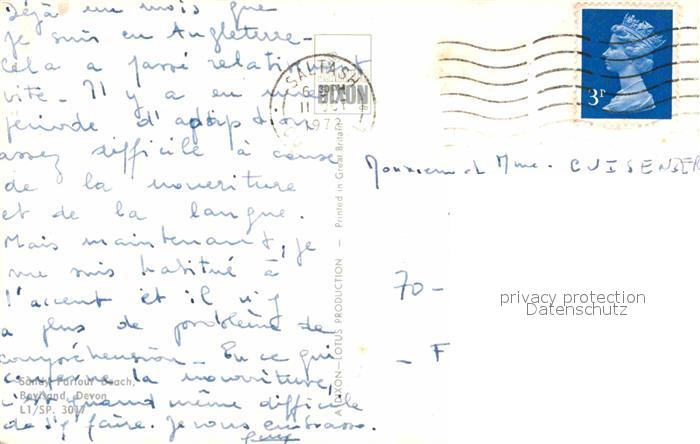 Déjà un mois que
je suis en Angleterre -
cela a passé relativement
vite. Il y a eu une
période d'adaption
assez difficile à cause
de la nouriture
et de la langue.
Mais maintenant, je
me suis habitué à
l'accent et il n'y
a plus de problème de
compréhension - En ce qui
concerne la nourriture,
c'est quand même difficile
de s'y faire. Je vous embrasse.
Sandy Parlour Beach,
Bovisand, Devon
L1/SP. 3017
A DIXON-LOTUS PRODUCTION — Printed in Great Britain
DIXON
SALTASH
6
11
1972
3P
Monsieur et Mme. CUISENIER
70 -
- F
privacy protection
Datenschutz